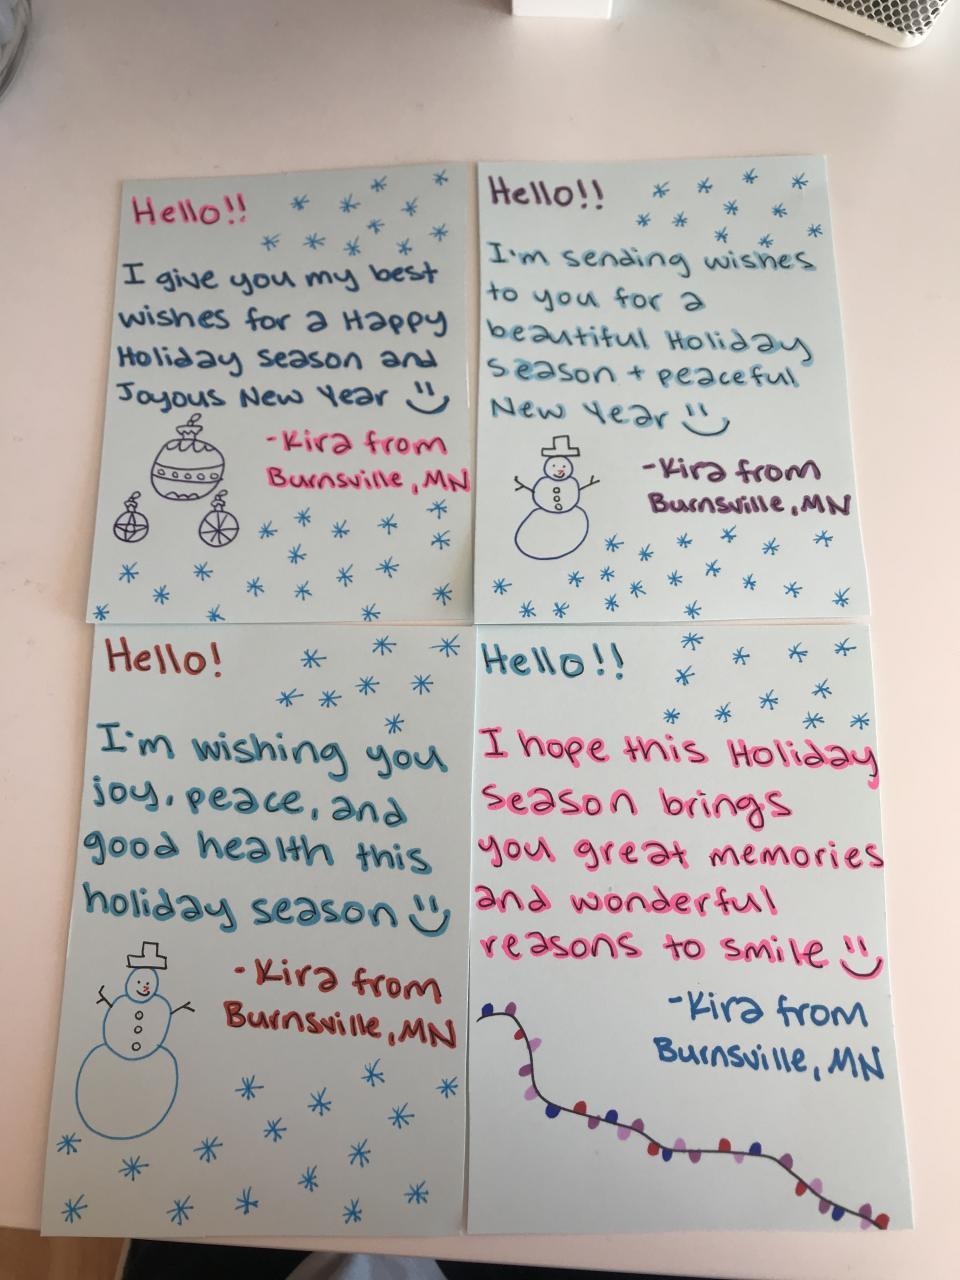 Hello!!
I give you my best
wishes for a Happy
Holiday season and
Joyous New Year
-Kira from
Burnsville, MN
Hello!!
I'm sending wishes
to you for a
beautiful Holiday
season + peaceful
New Year
-Kira from
Burnsville, MN
Hello!
I'm wishing you
joy, peace, and
good health this
holiday season
-Kira from
Burnsville, MN
Hello!!
I hope this Holiday
season brings
you great memories
and wonderful
reasons to smile
-Kira from
Burnsville, MN